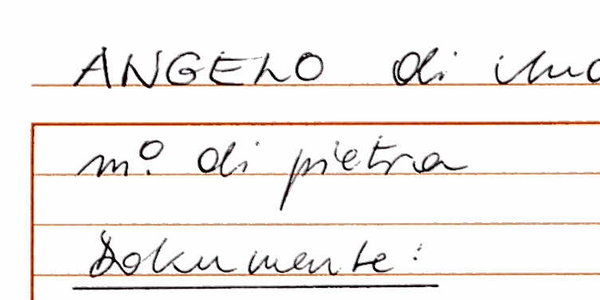 ANGELO di
mº. di pietra
Dokumente: